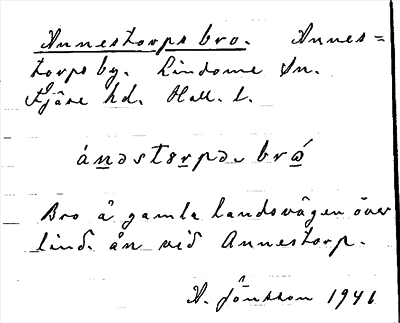 Annestorps bro. Annes=
torps by. Lindome Sn.
Fjäre hd. Hall. l.
ánəstɵrpə. brǿ
Bro å gamla landsvägen över
lind. ån vid Annestorp.
A. Jönsson 1941